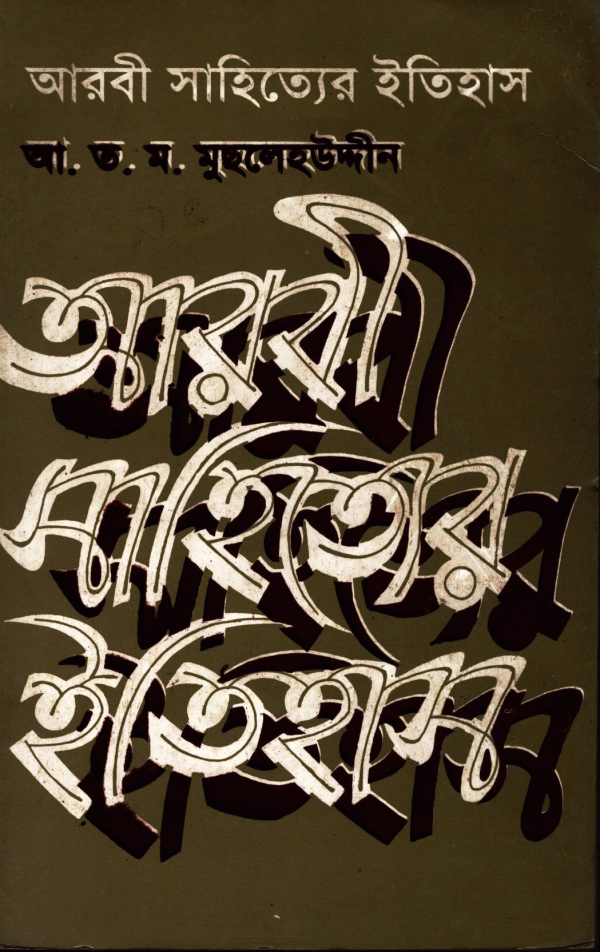 আরবী সাহিত্যের ইতিহাস
আ. ত. ম. মুছলেহউদ্দীন
আরবী
সাহিত্যের
ইতিহাস